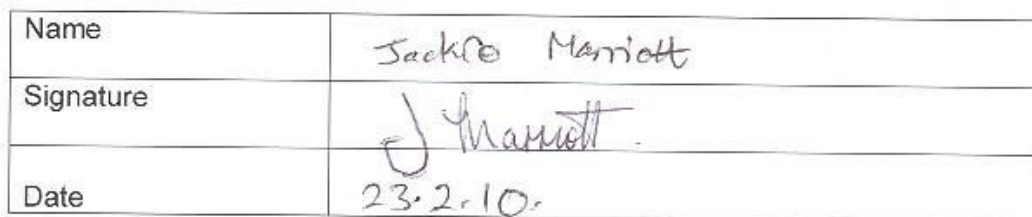 Name Jackie Marriott
Signature J Marriott.
Date 23.2.10.